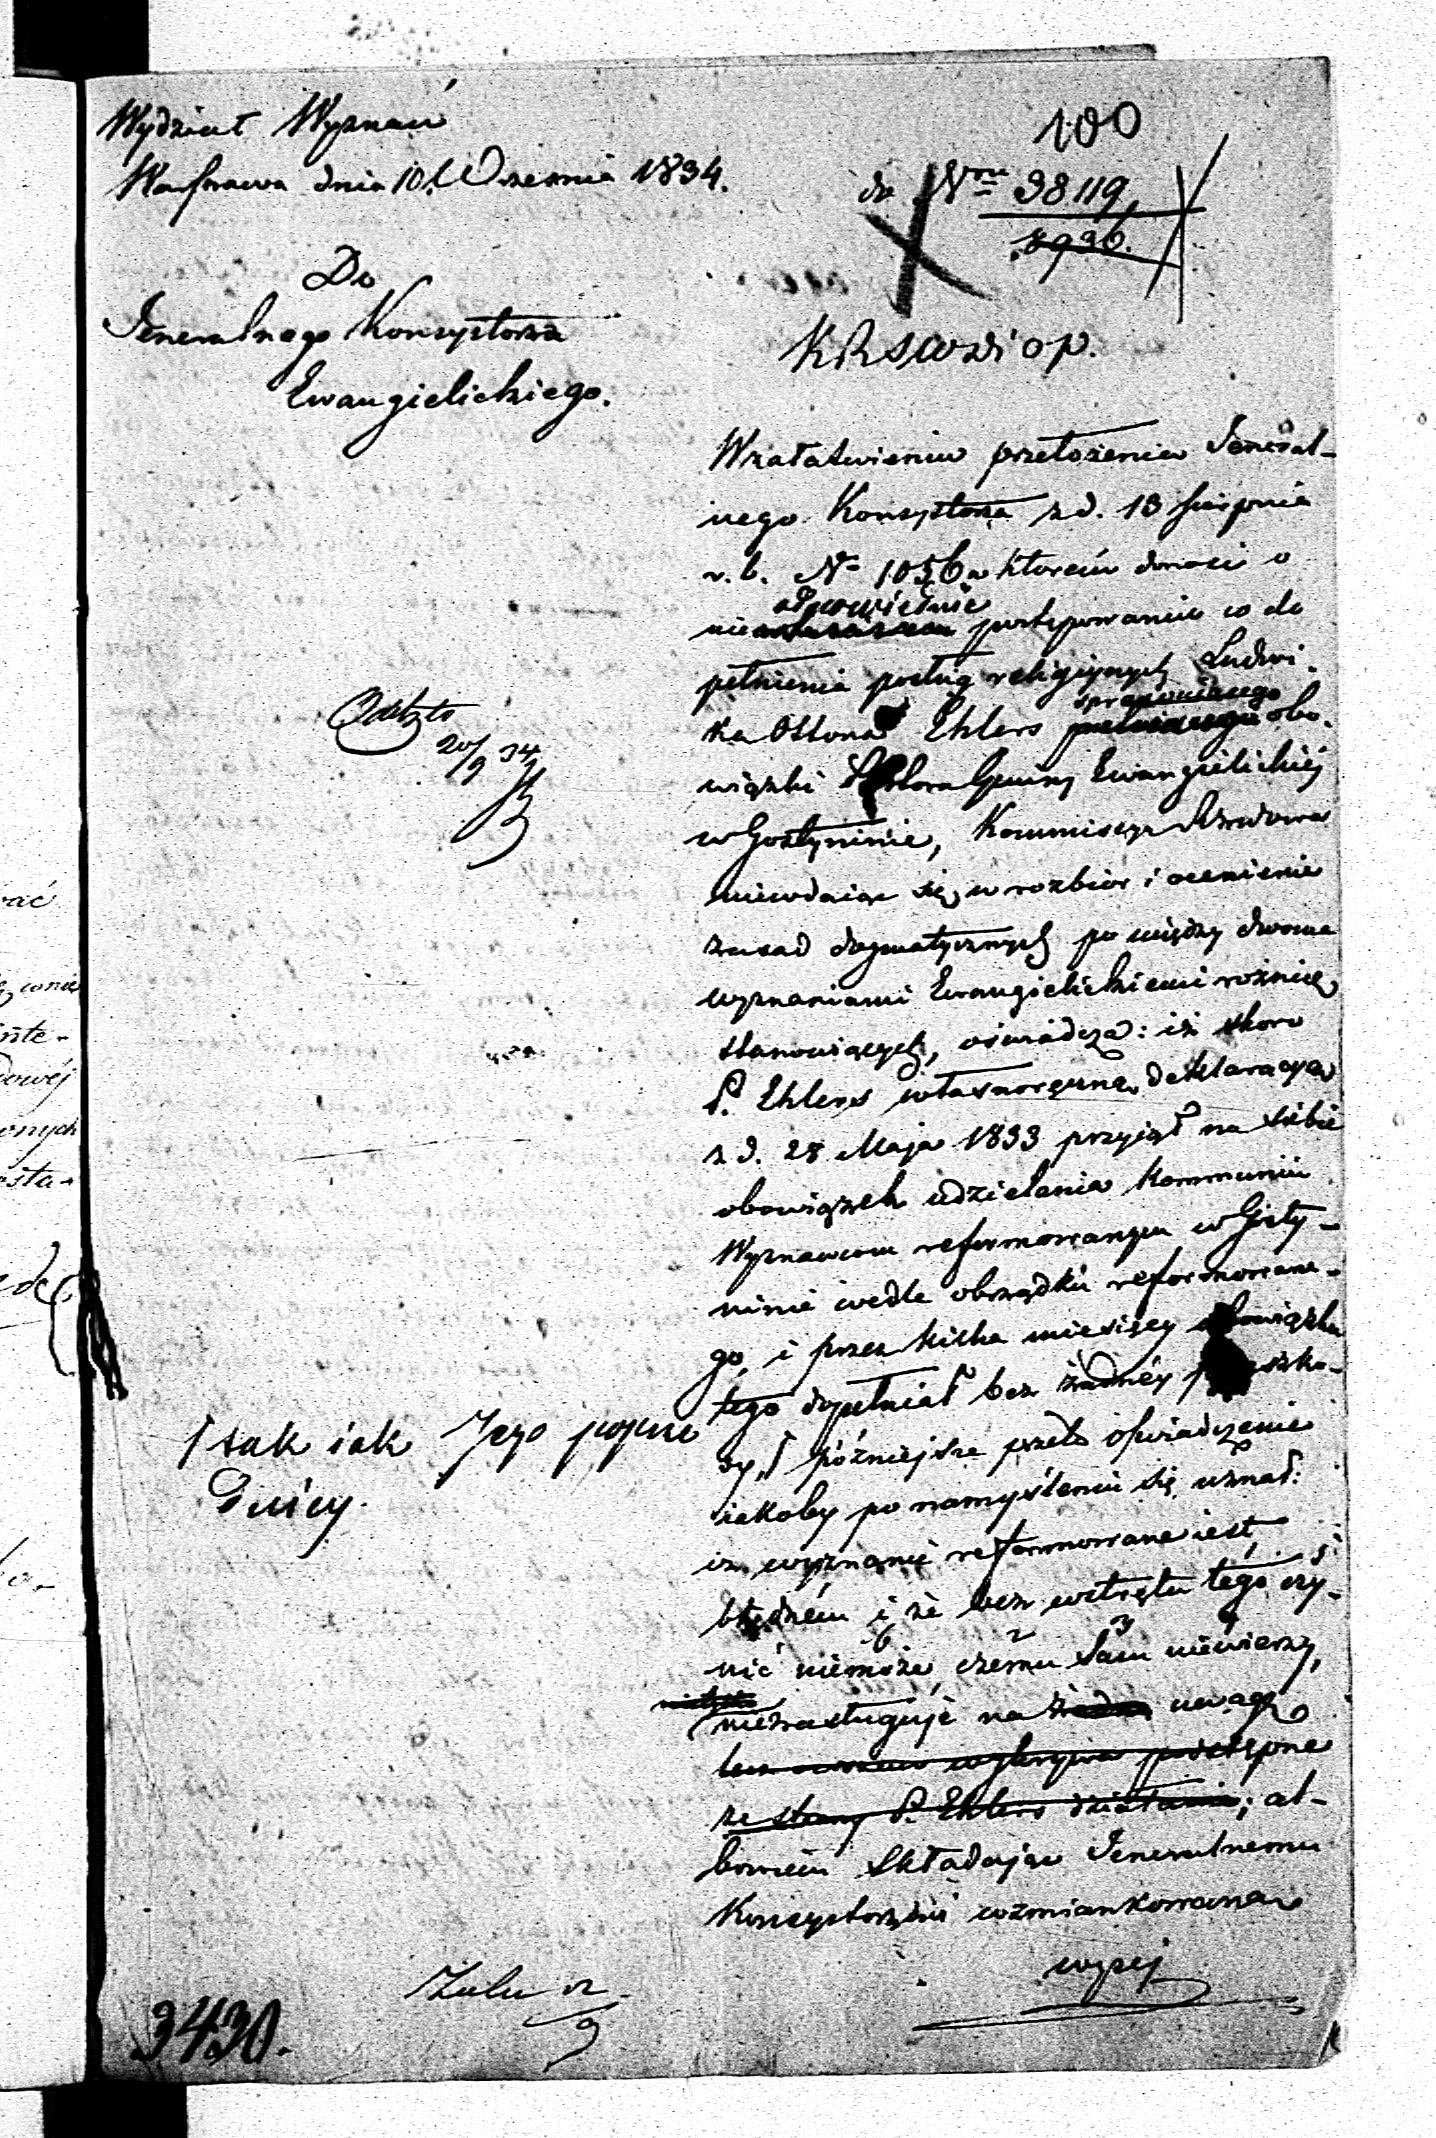 100
Wydział Wyznań
Warszawa dnia 10 Września 1834.
do Nru 38119
7936.
Do
Jeneralnego Konsystorza
Ewangielickiego.
KRSWDiOP.
W załatwieniu przełożenia Jeneral-
nego Konsystorza z d. 13 sierpnia
r. b. N 1056 w którém donosi o
nieodpowiednie postępowaniu co do
pełnienia posług religijnych Ludwi-
sprawuiącego
ka Ottona Ehlers obo-
wiązki Pastora Gminy Ewangielickiéj
w Gostyninie, Kommissya Rządowa
niewdaiąc się w rozbiór i ocenienie
zasad dogmatycznych po między dwoma
wyznaniami Ewangielickiemi różnicę
stanowiących, oświadcza: iż skoro
P. Ehlers własnoręczną deklaracyą
z d. 28 Maja 1833 przyjął na siebie
obowiązek udzielania kommunii
Wyznawcom reformowanym w Gosty-
ninie wedle obrządku reformowane-
go, i przez kilka miesięcy obowiązku
tego dopełniał bez żadnéy przeszko-
dy, późniejsze przeto oświadczenie
iakoby po namyśleniu się uznał:
iż wyznanie reformowane iest
błędném i że bez wstrętu tego czy-
nić niemoże, czemu sam niewierzy,
niezasługuje na uwagę
lecz postępne
ze strony P. Ehlers działania; al-
bowiem składając Jeneralnemu
Konsystorzowi wzmiankowaną
wyżej
Odeszło
20/9 34
tak iak Jego poprze
dniczy.
3430.